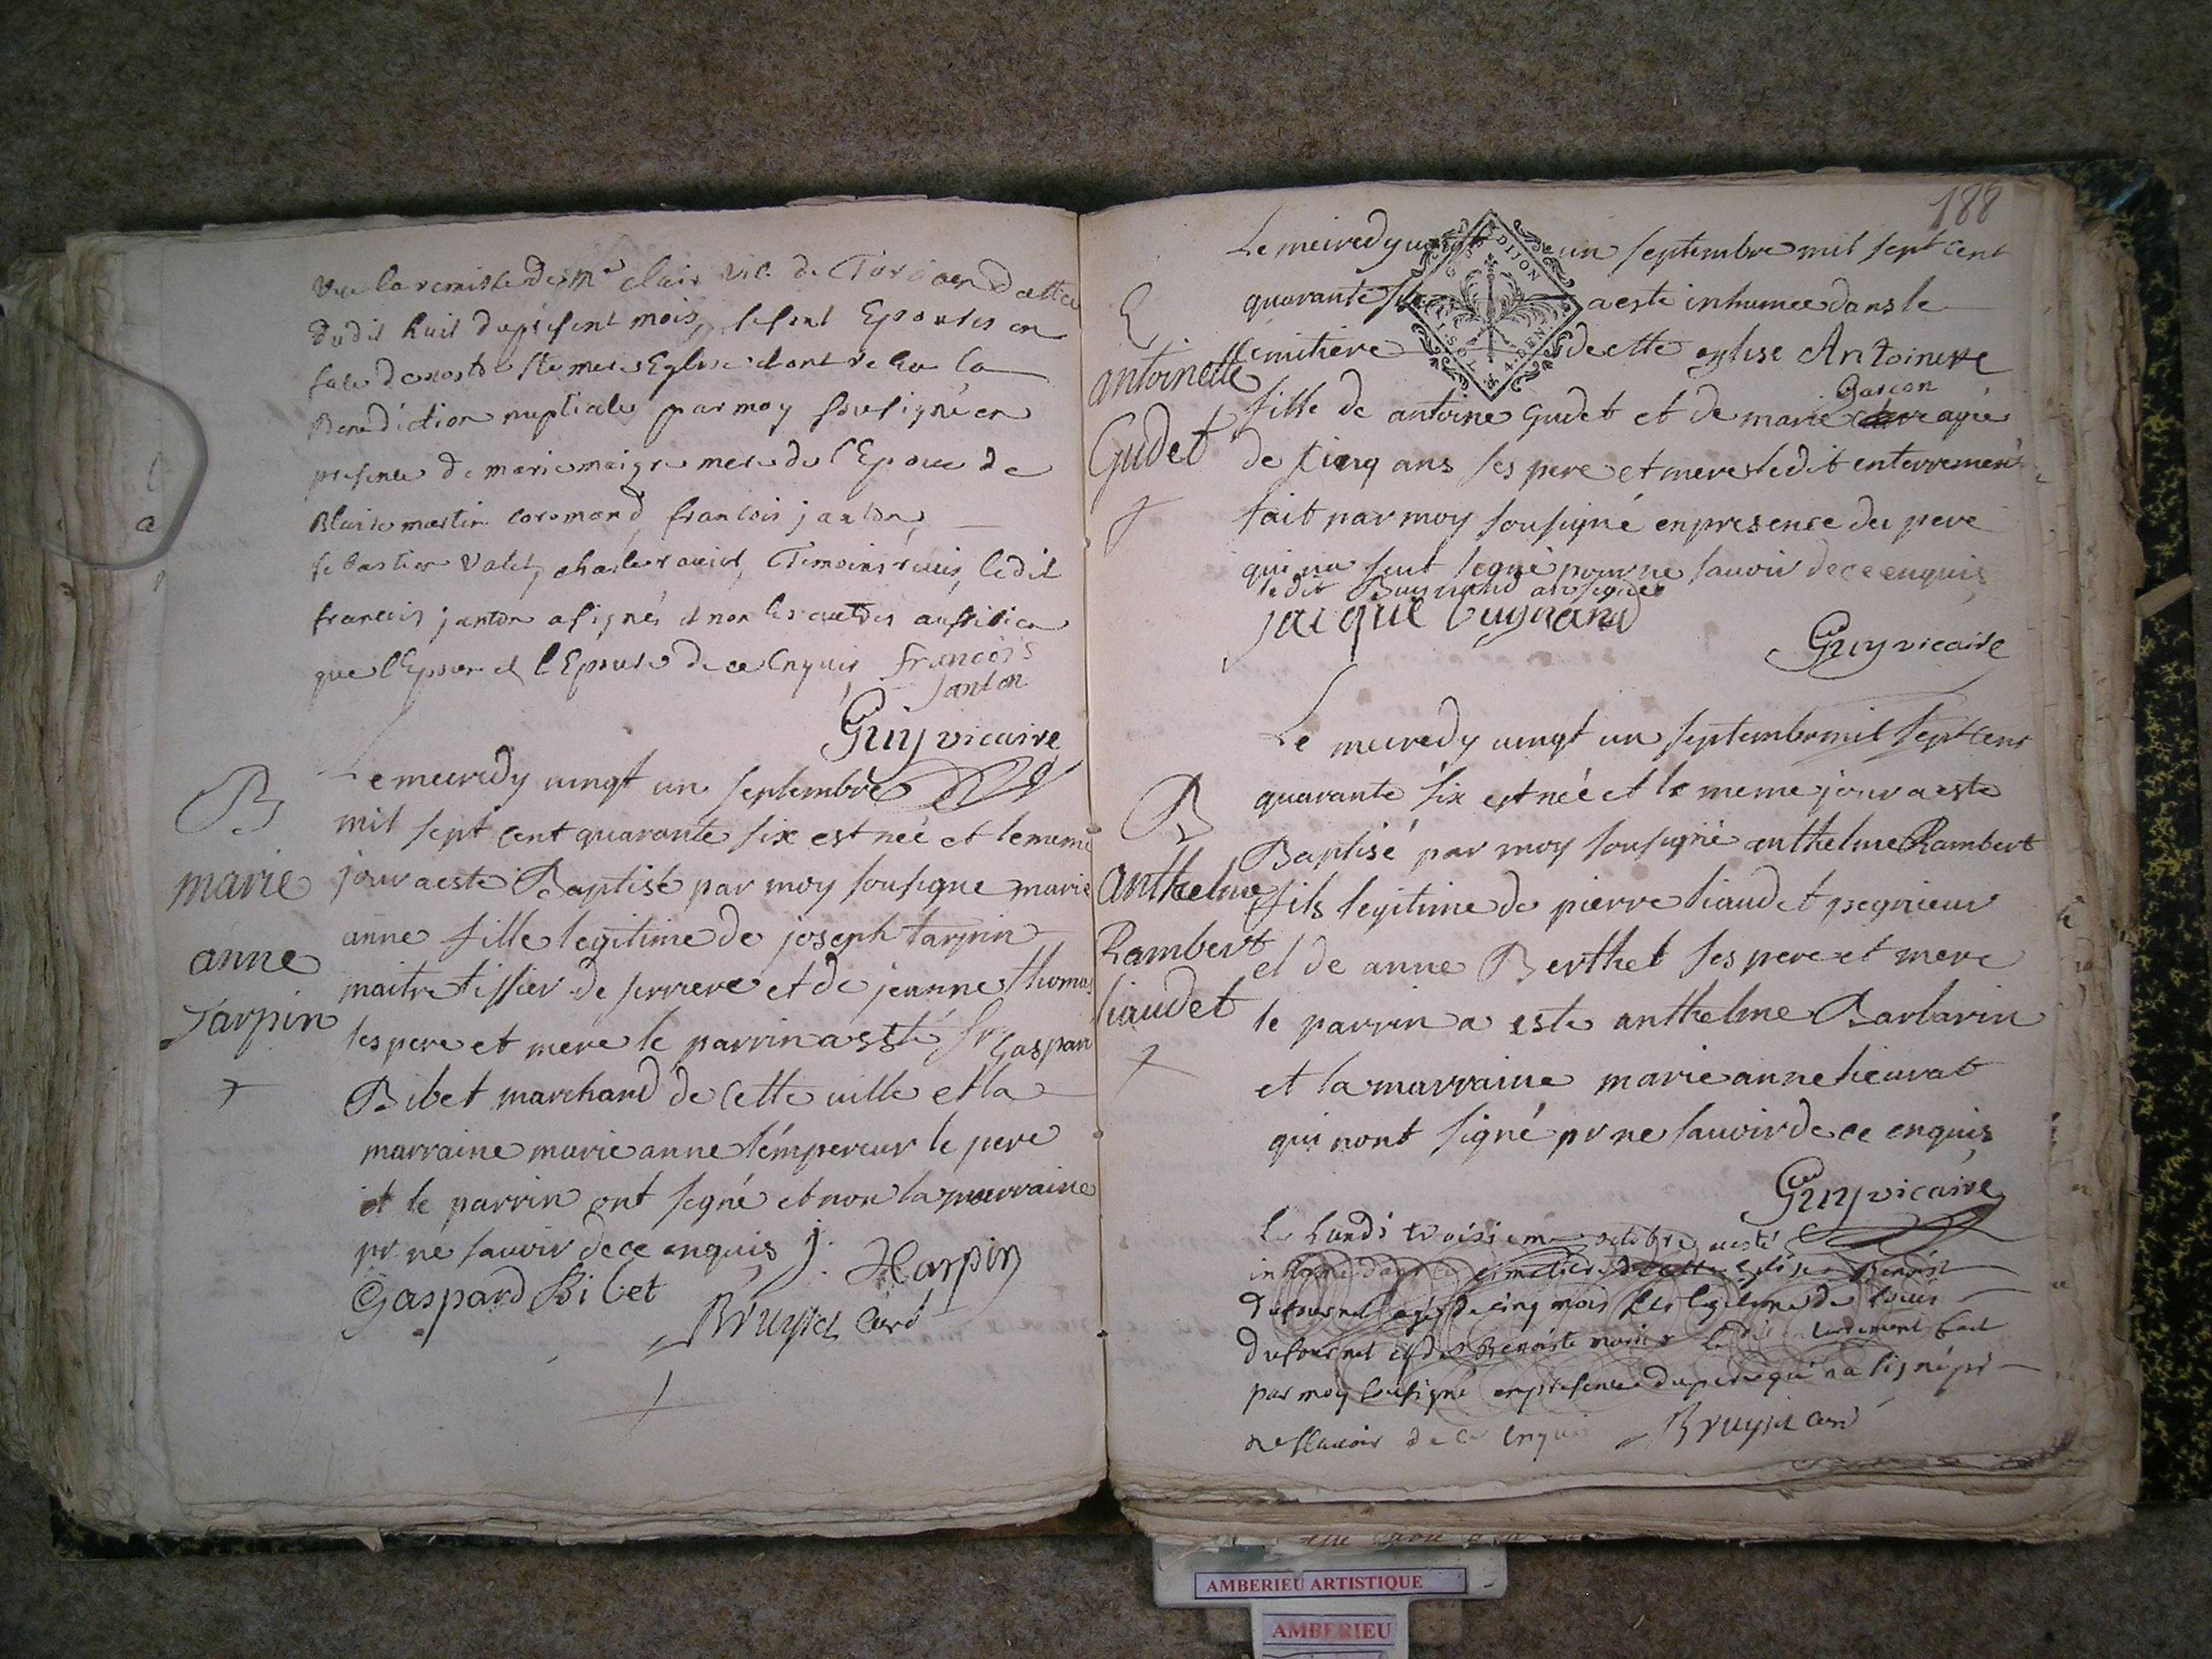 Vue la remise de Mr clair vic. de
dudit huit du présent mois se sont Epousés en
face de nostre ste mere Eglise et ont recu la
Benediction nuptiale par moy sousigné en
presence de marie maigre mere de l'Epouse de
Blaise martin cormand françois janton
sebastien valet, charle ravier, Temoins requis ledit
francois janton a signé et non les autres aussi bien
que l'Epoux et l'Epouse de ce Enquis françois
janton
Guy vicaire
B
marie
anne
Tarpin
Le mecredy vingt un septembre
mil sept cent quarante six est née et le meme
jour a esté Baptisé par moy sousigne marie
anne fille legitime de joseph tarpin
maitre tissier de serriere et de jeanne thomas
ses pere et mere le parrin a esté sr Gaspard
Bibet marchand de cette ville et la
marraine marie anne l'émpereur le pere
et le parrin ont signé et non la marraine
pr ne savoir de ce enquis j. Harpin
Gaspard Bibet
Bruyset curé
188
E
antoinette
Gudet
Le mecredy vingt un septembre mil sept cent
quarante six a esté inhumée dans le
cemitiere de cette eglise Antoinette
fille de antoine Gudet et de marie Garcon agée
de cinq ans ses pere et mere ledit enterrement
fait par moy sousigné en presence du pere
qui na seut signé pour ne sauoir de ce enquis
ledit Bugnand a signé
jacque bugnand
Guy vicaire
G DIJON
4 DEN
B
anthelme
Rambert
liaudet
Le mecredy vingt un septembre mil sept cent
quarante six est née et le meme jour a esté
Baptisé par moy sousigné anthelme Rambert
fils legitime de pierre liaudet pegnieur
et de anne Berthet ses pere et mere
le parrin a esté anthelme Barbarin
et la marraine marie anne lieurat
qui nont signé pr ne sauoir de ce enquis
Guy vicaire
Le Lundi troisieme octobre a esté
inhumé dans le cimetiere de cette Eglise Benoist
dufournel agé de cinq mois fils legitime de louis
dufournel et de Benoiste ledit enterrement fait
par moy sousigné en presence du pere qui na signé pr
ne scauoir de ce Enquis Bruyset curé
AMBERIEU ARTISTIQUE
AMBERIEU